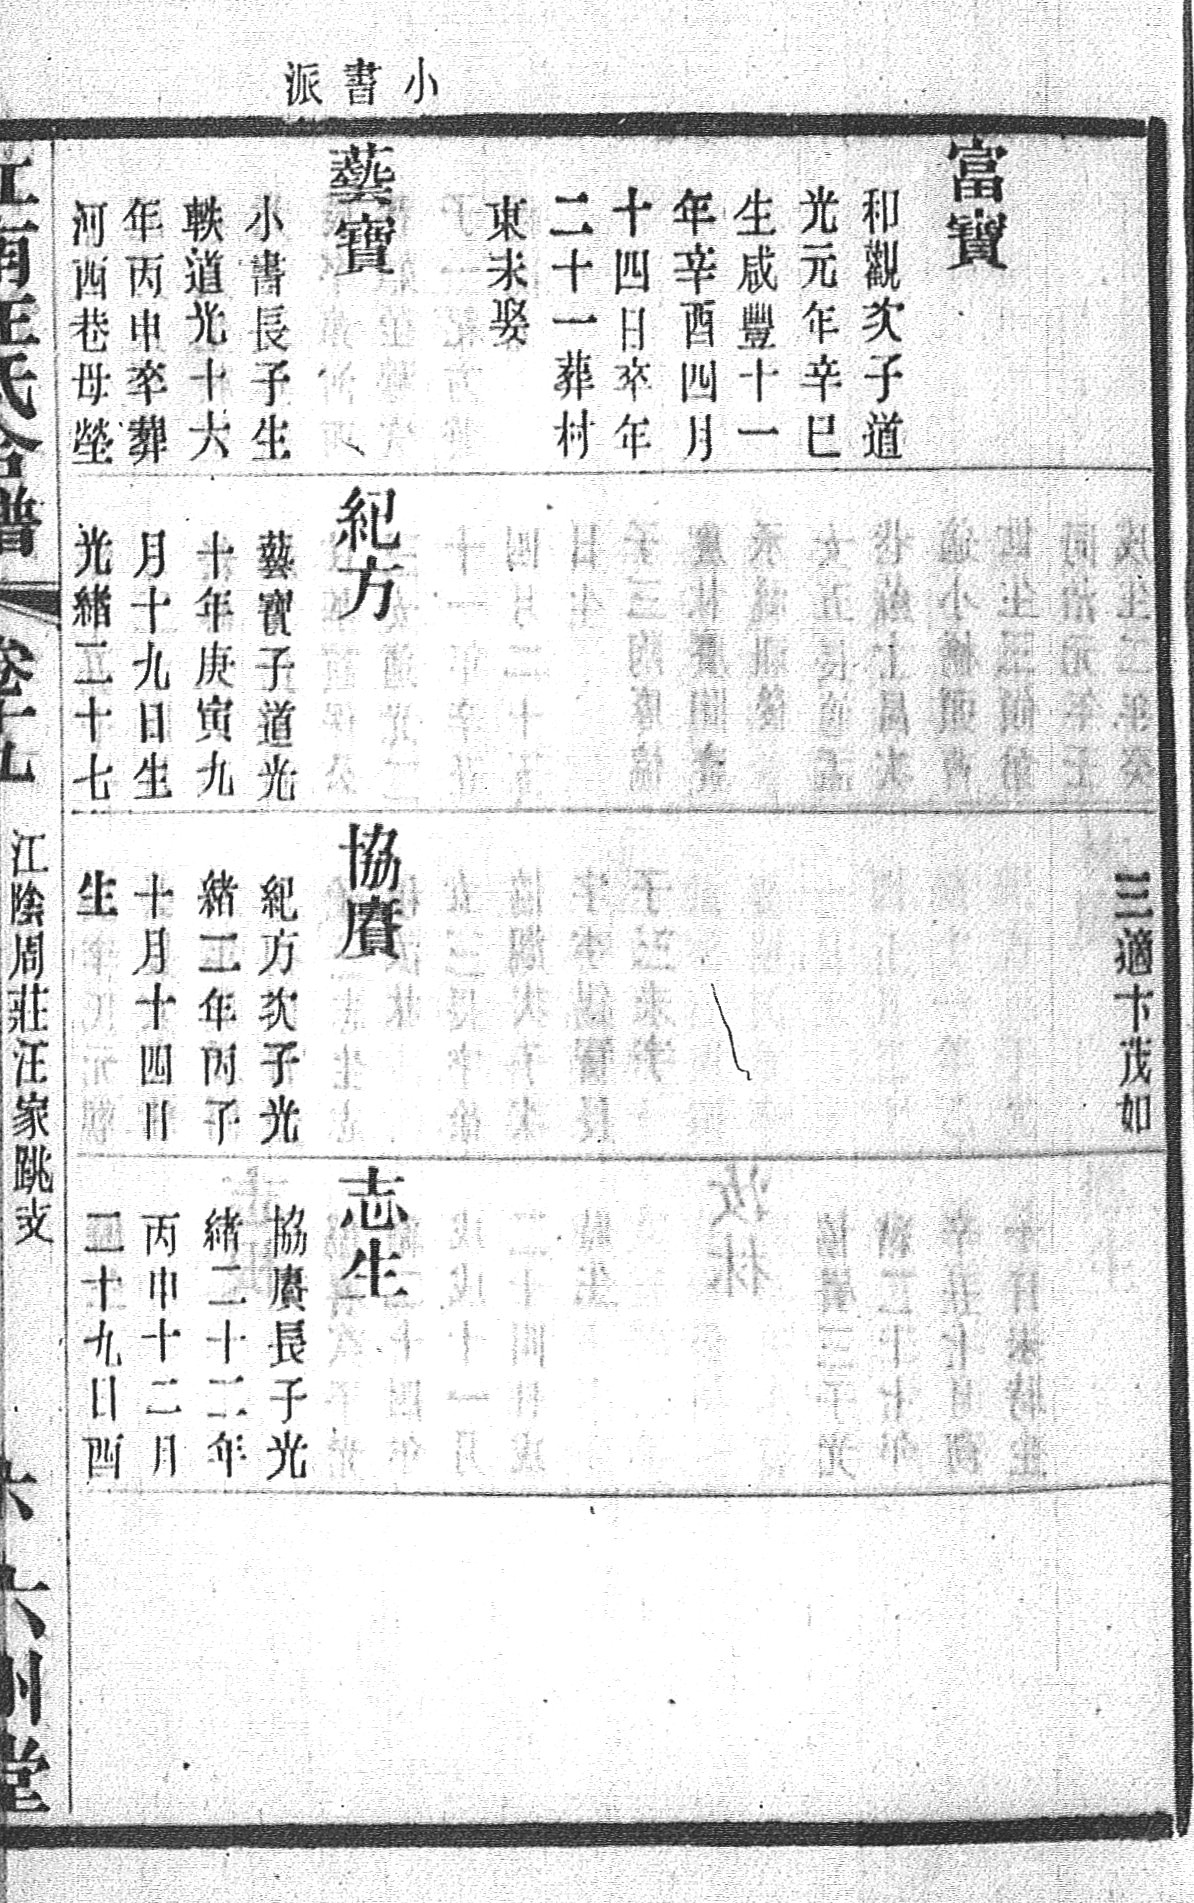 小書派
富寶
和觀次子道
光元年辛巳
生咸豐十一
年辛酉四月
十四日卒年
二十一葬村
東未娶
藝寶
小書長子生
軼道光十六
年丙申卒葬
河西巷母塋
紀方
藝寶子道光
十年庚寅九
月十九日生
光緒二十七
三適卞茂如
協賡
紀方次子光
緒二年丙子
十月十四日
生
志生
協賡長子光
緒二十二年
丙申十二月
二十九日酉
江南汪氏合譜
卷十九
江陰周莊汪家跳支
六
六州堂